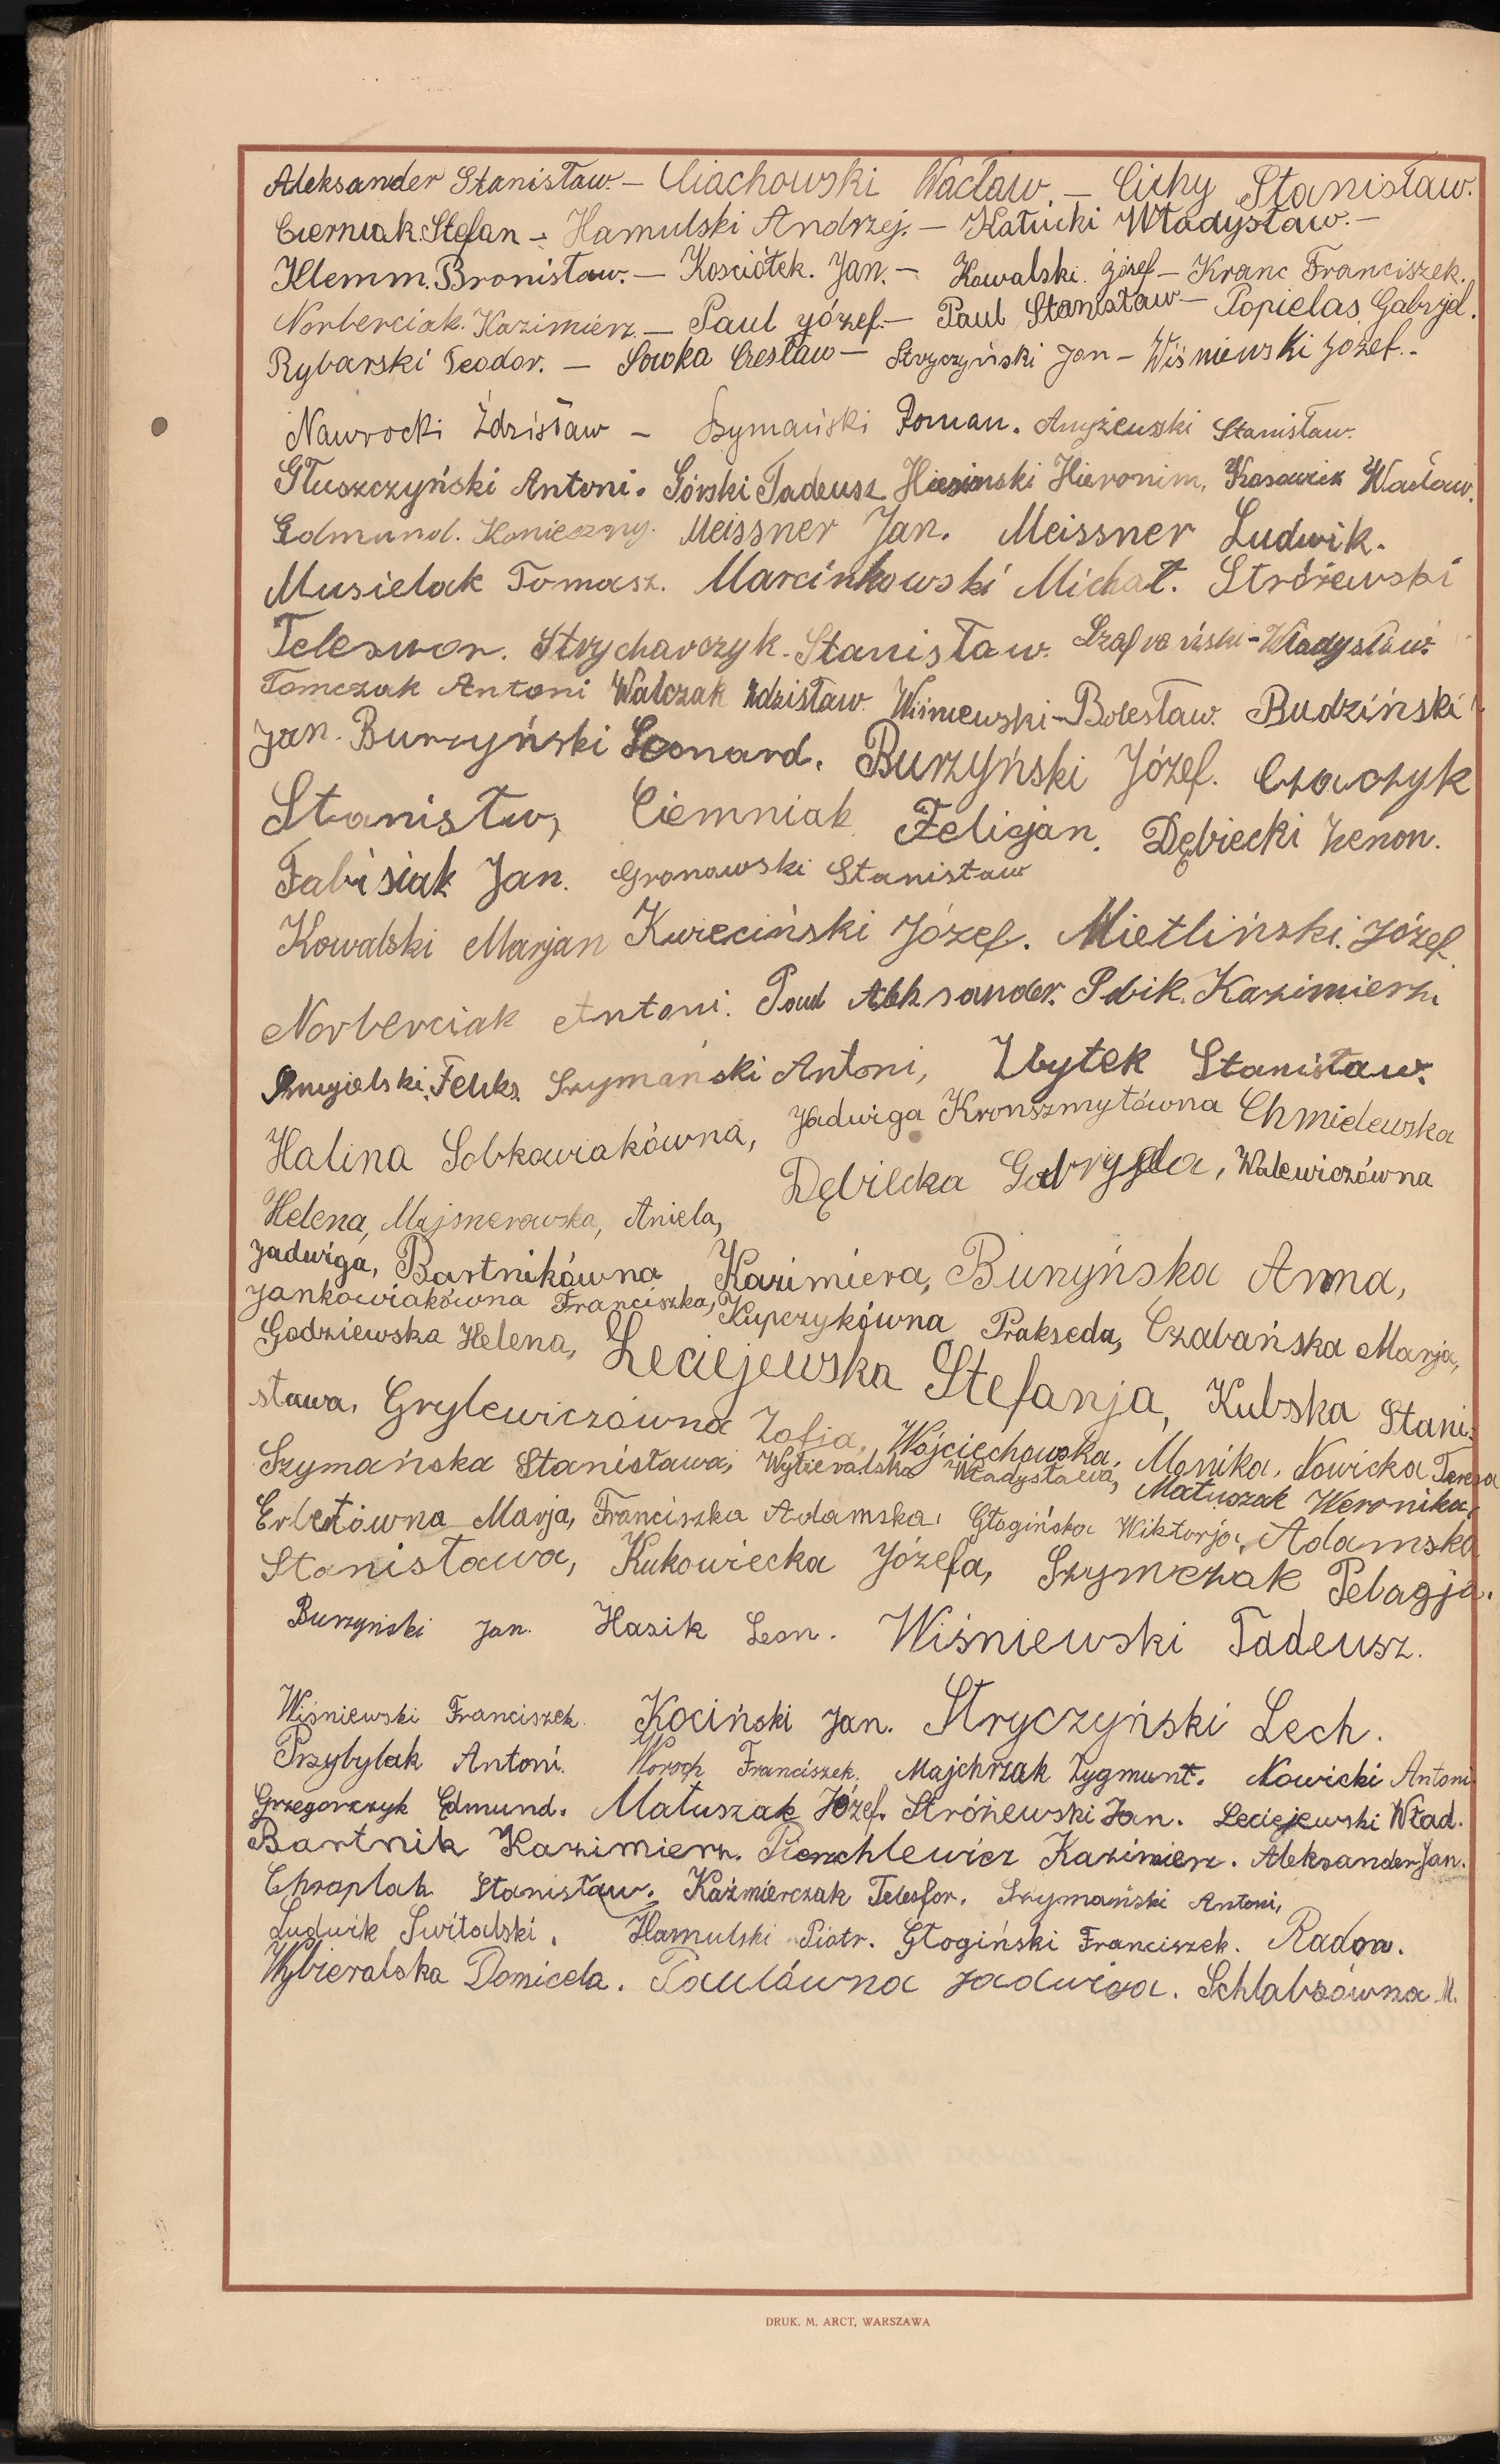 Aleksander Stanisław. — Ciachowski Wacław. — Cichy Stanisław.
Cierniak Stefan — Hamulski Andrzej. — Kałucki Władysław. —
Klemm. Bronisław. — Kosciółek. Jan. — Kowalski Józef — Kranc Franciszek.
Norberciak. Kazimierz — Paul Józef. — Paul Stanisław — Popielas Gabrjel.
Rybarski Teodor. — Sowka Czesław — Stryczyński Jan — Wiśniewski Józef. -
Nawrocki Zdzisław — Szymański Roman. Stanisław.
Głuszczyński Antoni. Górski Tadeusz Hieronim, Wacław.
Edmund. Konieczny. Meissner Jan. Meissner Ludwik.
Musielak Tomasz. Marcinkowski Michał. Stróżewski
Strycharczyk. Stanisław. Szafrański - Władysław.
Tomczak Antoni Walczak Zdzisław. Wiśniewski - Bolesław. Budziński
Jan. Burzyński Leonard. Burzyński Józef. Czaczyk
Stanisłw, Ciemniak Felicjan. Dębiecki Zenon.
Fabisiak Jan. Gronowski Stanisław
Kowalski Marjan Kwieciński Józef. Mietliński. Józef.
Norberciak Antoni. Paul Aleksander. Kazimierz.
Szymański Antoni, Zbytek Stanisław.
Halina Sobkowiakówna, Jadwiga Kronszmytówna Chmielewska
Helena, Majsnerowska, Aniela, Dębiecka Gabryela, Walewiczówna
Jadwiga, Bartnikówna Kazimiera, Burzyńska Anna,
Jankowiakówna Franciszka, Kupczykówna Prakseda, Czabańska Marja,
Godziewska Helena, Leciejewska Stefanja, Kubska Stani-
sława. Grylewiczówna Zofia, Wojciechowska. Monika. Nowicka Teresa
Szymańska Stanisława, Wybieralska Władysława, Matuszak Weronika,
Erbetówna Marja, Franciszka Adamska, Głogińska Wiktorja, Adamska
Stanisława, Kukowiecka Józefa, Szymczak Pelagja.
Burzyński Jan. Hasik Leon. Wiśniewski Tadeusz.
Wiśniewski Franciszek. Kociński Jan. Stryczyński Lech.
Przybylak Antoni. Woroch Franciszek. Majchrzak Zygmunt. Nowicki Antoni
Grzegorczyk Edmund. Matuszak Józef. Stróżewski Jan. Leciejewski Wład.
Bartnik Kazimierz. Kazimierz. Aleksander Jan.
Chraplak Stanisław. Kaźmierczak Telesfor. Szymański Antoni,
Ludwik Switalski. Hamulski Piotr. Głogiński Franciszek. Radon.
Wybieralska Domicela. Paulówna Jadwiga. Schlabsówna M.
DRUK. M. ARCT, WARSZAWA